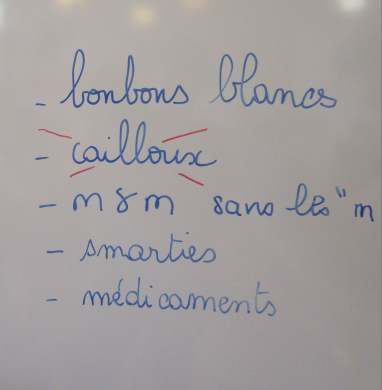 - bonbons blancs
- cailloux
- m & m sans les "m
- smarties
- médicaments